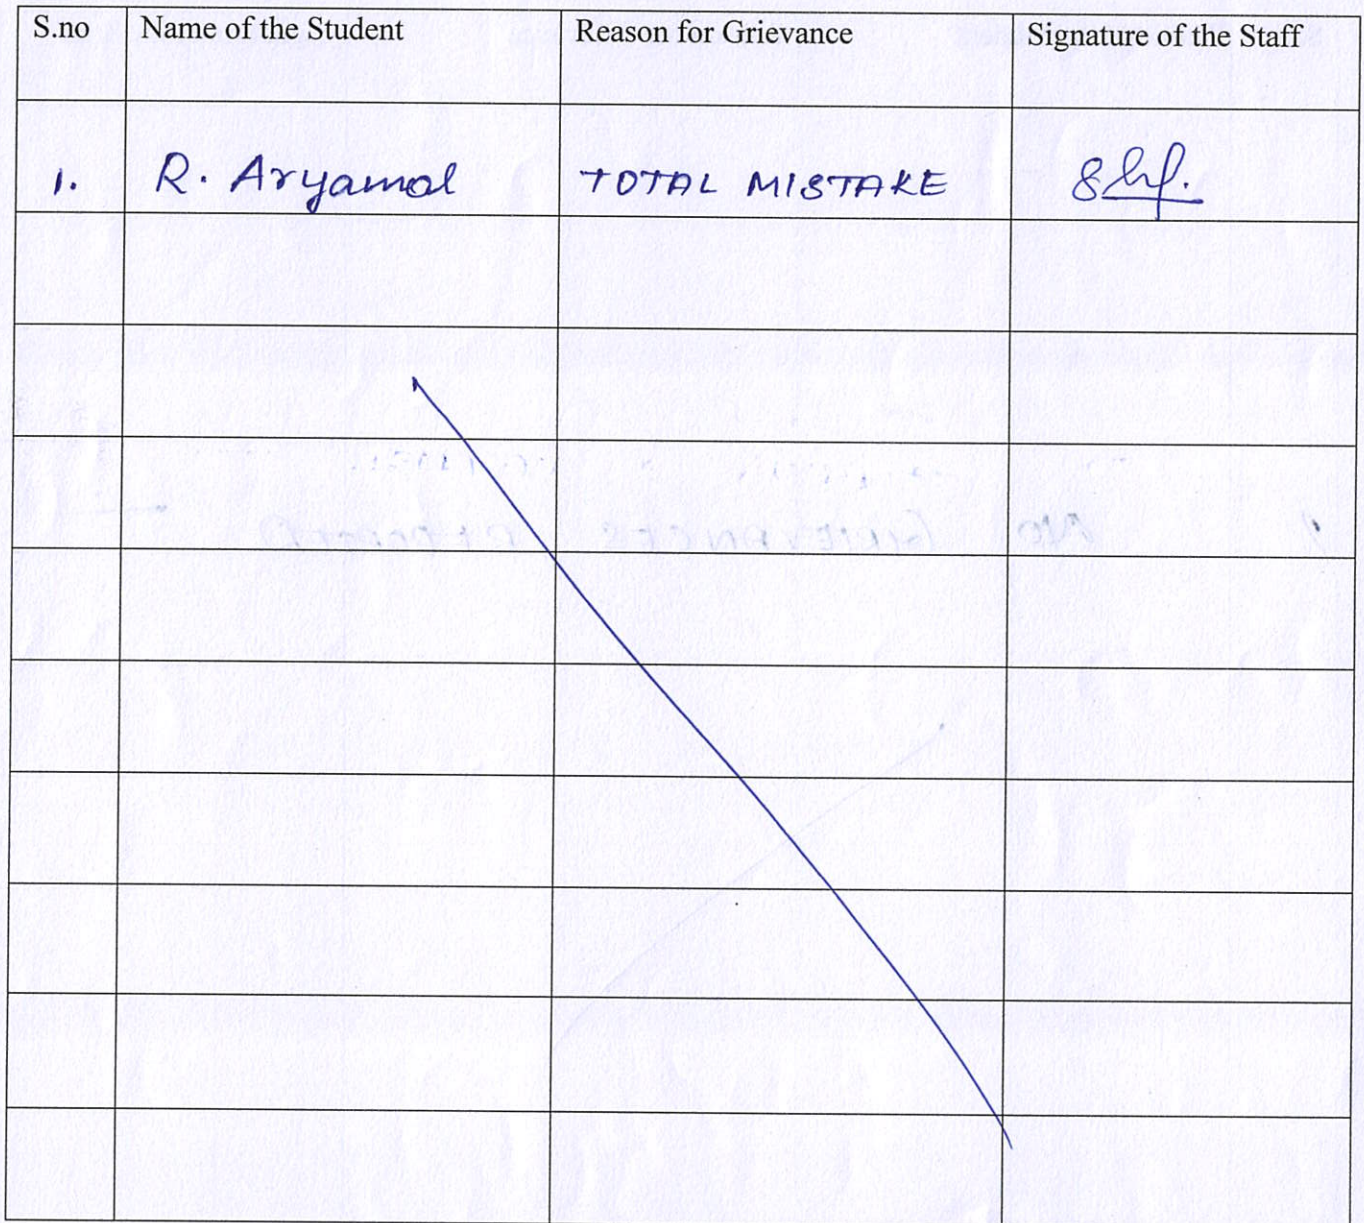 S.no Name of the Student Reason for Grievance Signature of the Staff
1. R. Aryamol TOTAL MISTAKE